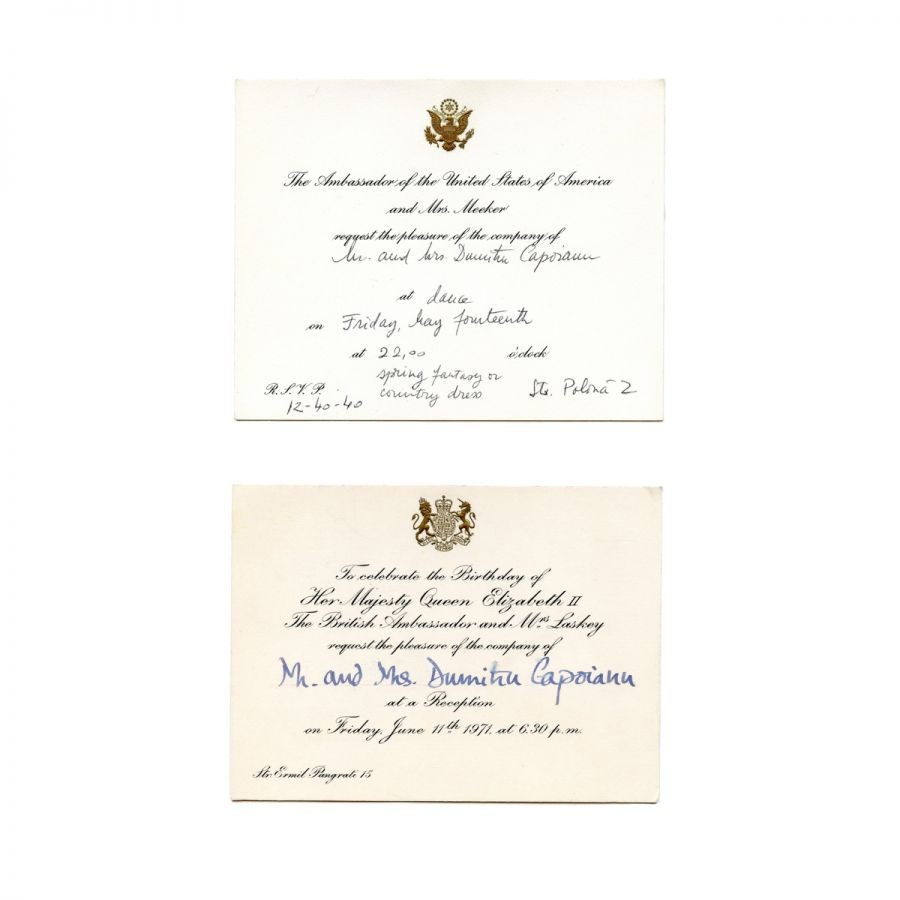 The Ambassador of the United States of America
and Mrs. Meeker
request the pleasure of the company of
Mr. and Mrs. Dumitru Capoianu
at dance
on Friday, May fourteenth
at 22,00 o'clock
spring fantasy or
country dress
R.S.V.P.
12-40-40
Str. Polonă 2
To celebrate the Birthday of
Her Majesty Queen Elizabeth II
The British Ambassador and Mrs Laskey
request the pleasure of the company of
Mr. and Mrs. Dumitru Capoianu
at a Reception
on Friday, June 11th 1971, at 6.30 p.m.
Str. Ermil Pangrati 15